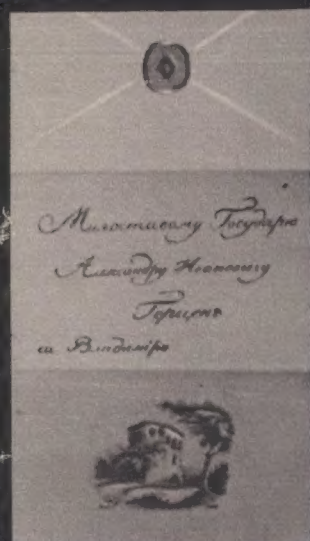 Милостивому Государю
Александру Ивановичу
Герцену
Владимiръ